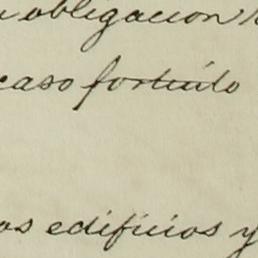 obligacion
caso fortuito
os edificios y